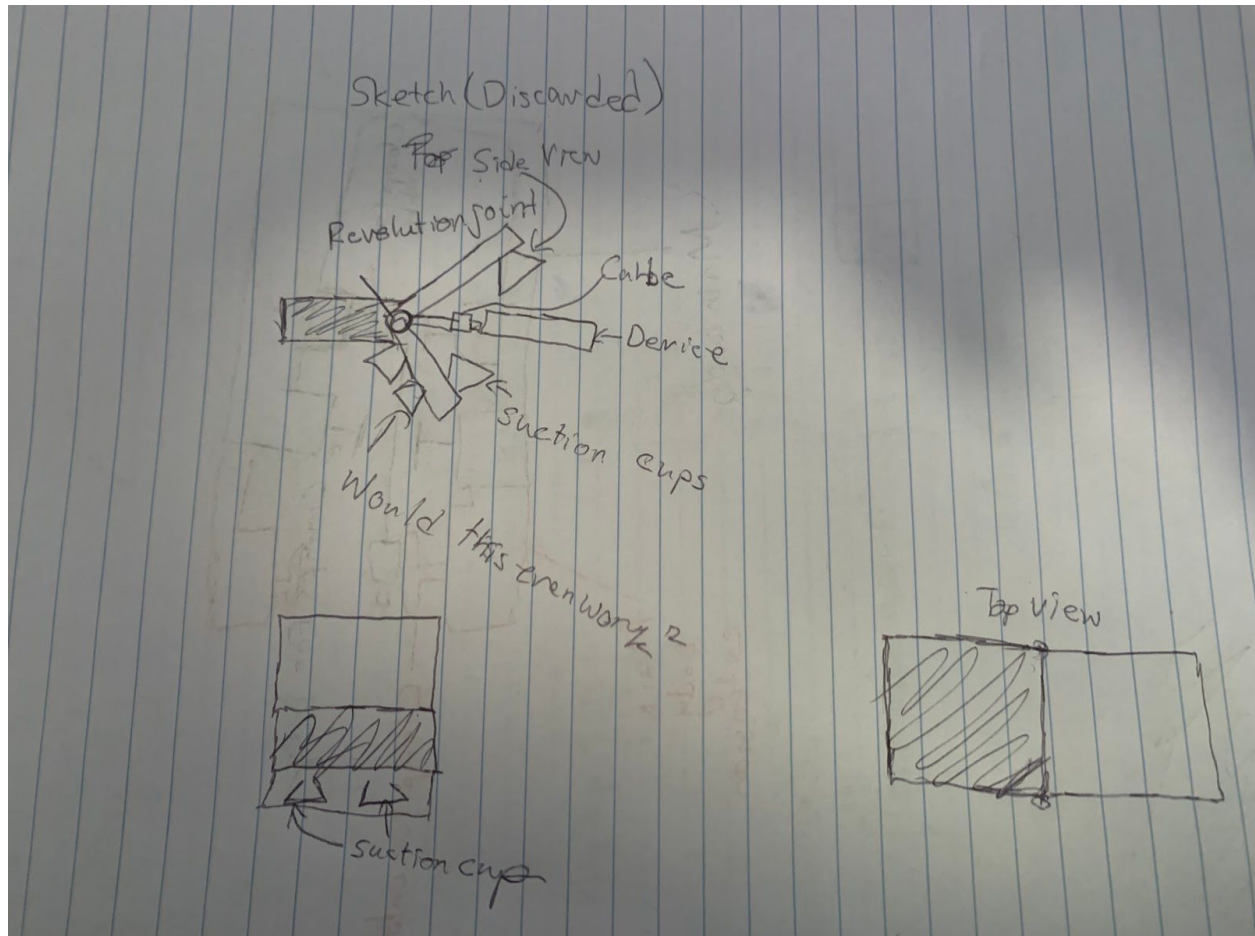 Sketch (Discarded)
Side View
Revolution joint
Carbe
Device
suction cups
Would this even work?
Top View
suction cup